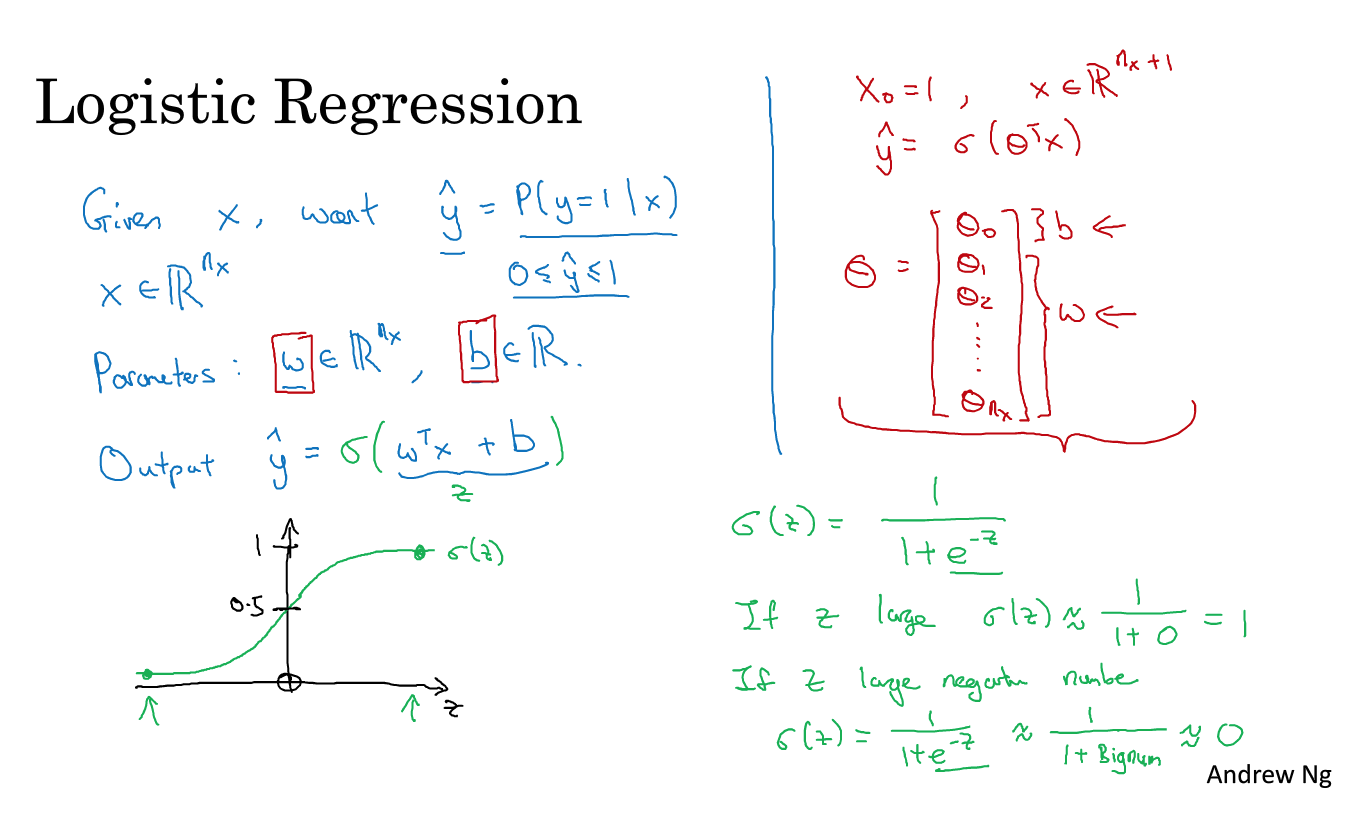 Logistic Regression
Given x, want ŷ = P(y=1|x)
x ∈ ℝ^nx
0 ≤ ŷ ≤ 1
Parameters: w ∈ ℝ^nx, b ∈ ℝ.
Output ŷ = σ(wᵀx + b)
z
1
0.5
σ(z)
z
x₀ = 1, x ∈ ℝ^nx+1
ŷ = σ(θᵀx)
θ = [θ₀ θ₁ θ₂ ⋮ θnx]
} b ←
} w ←
σ(z) = 1 / (1 + e^-z)
If z large σ(z) ≈ 1 / (1 + 0) = 1
If z large negative number
σ(z) = 1 / (1 + e^-z) ≈ 1 / (1 + Bignum) ≈ 0
Andrew Ng